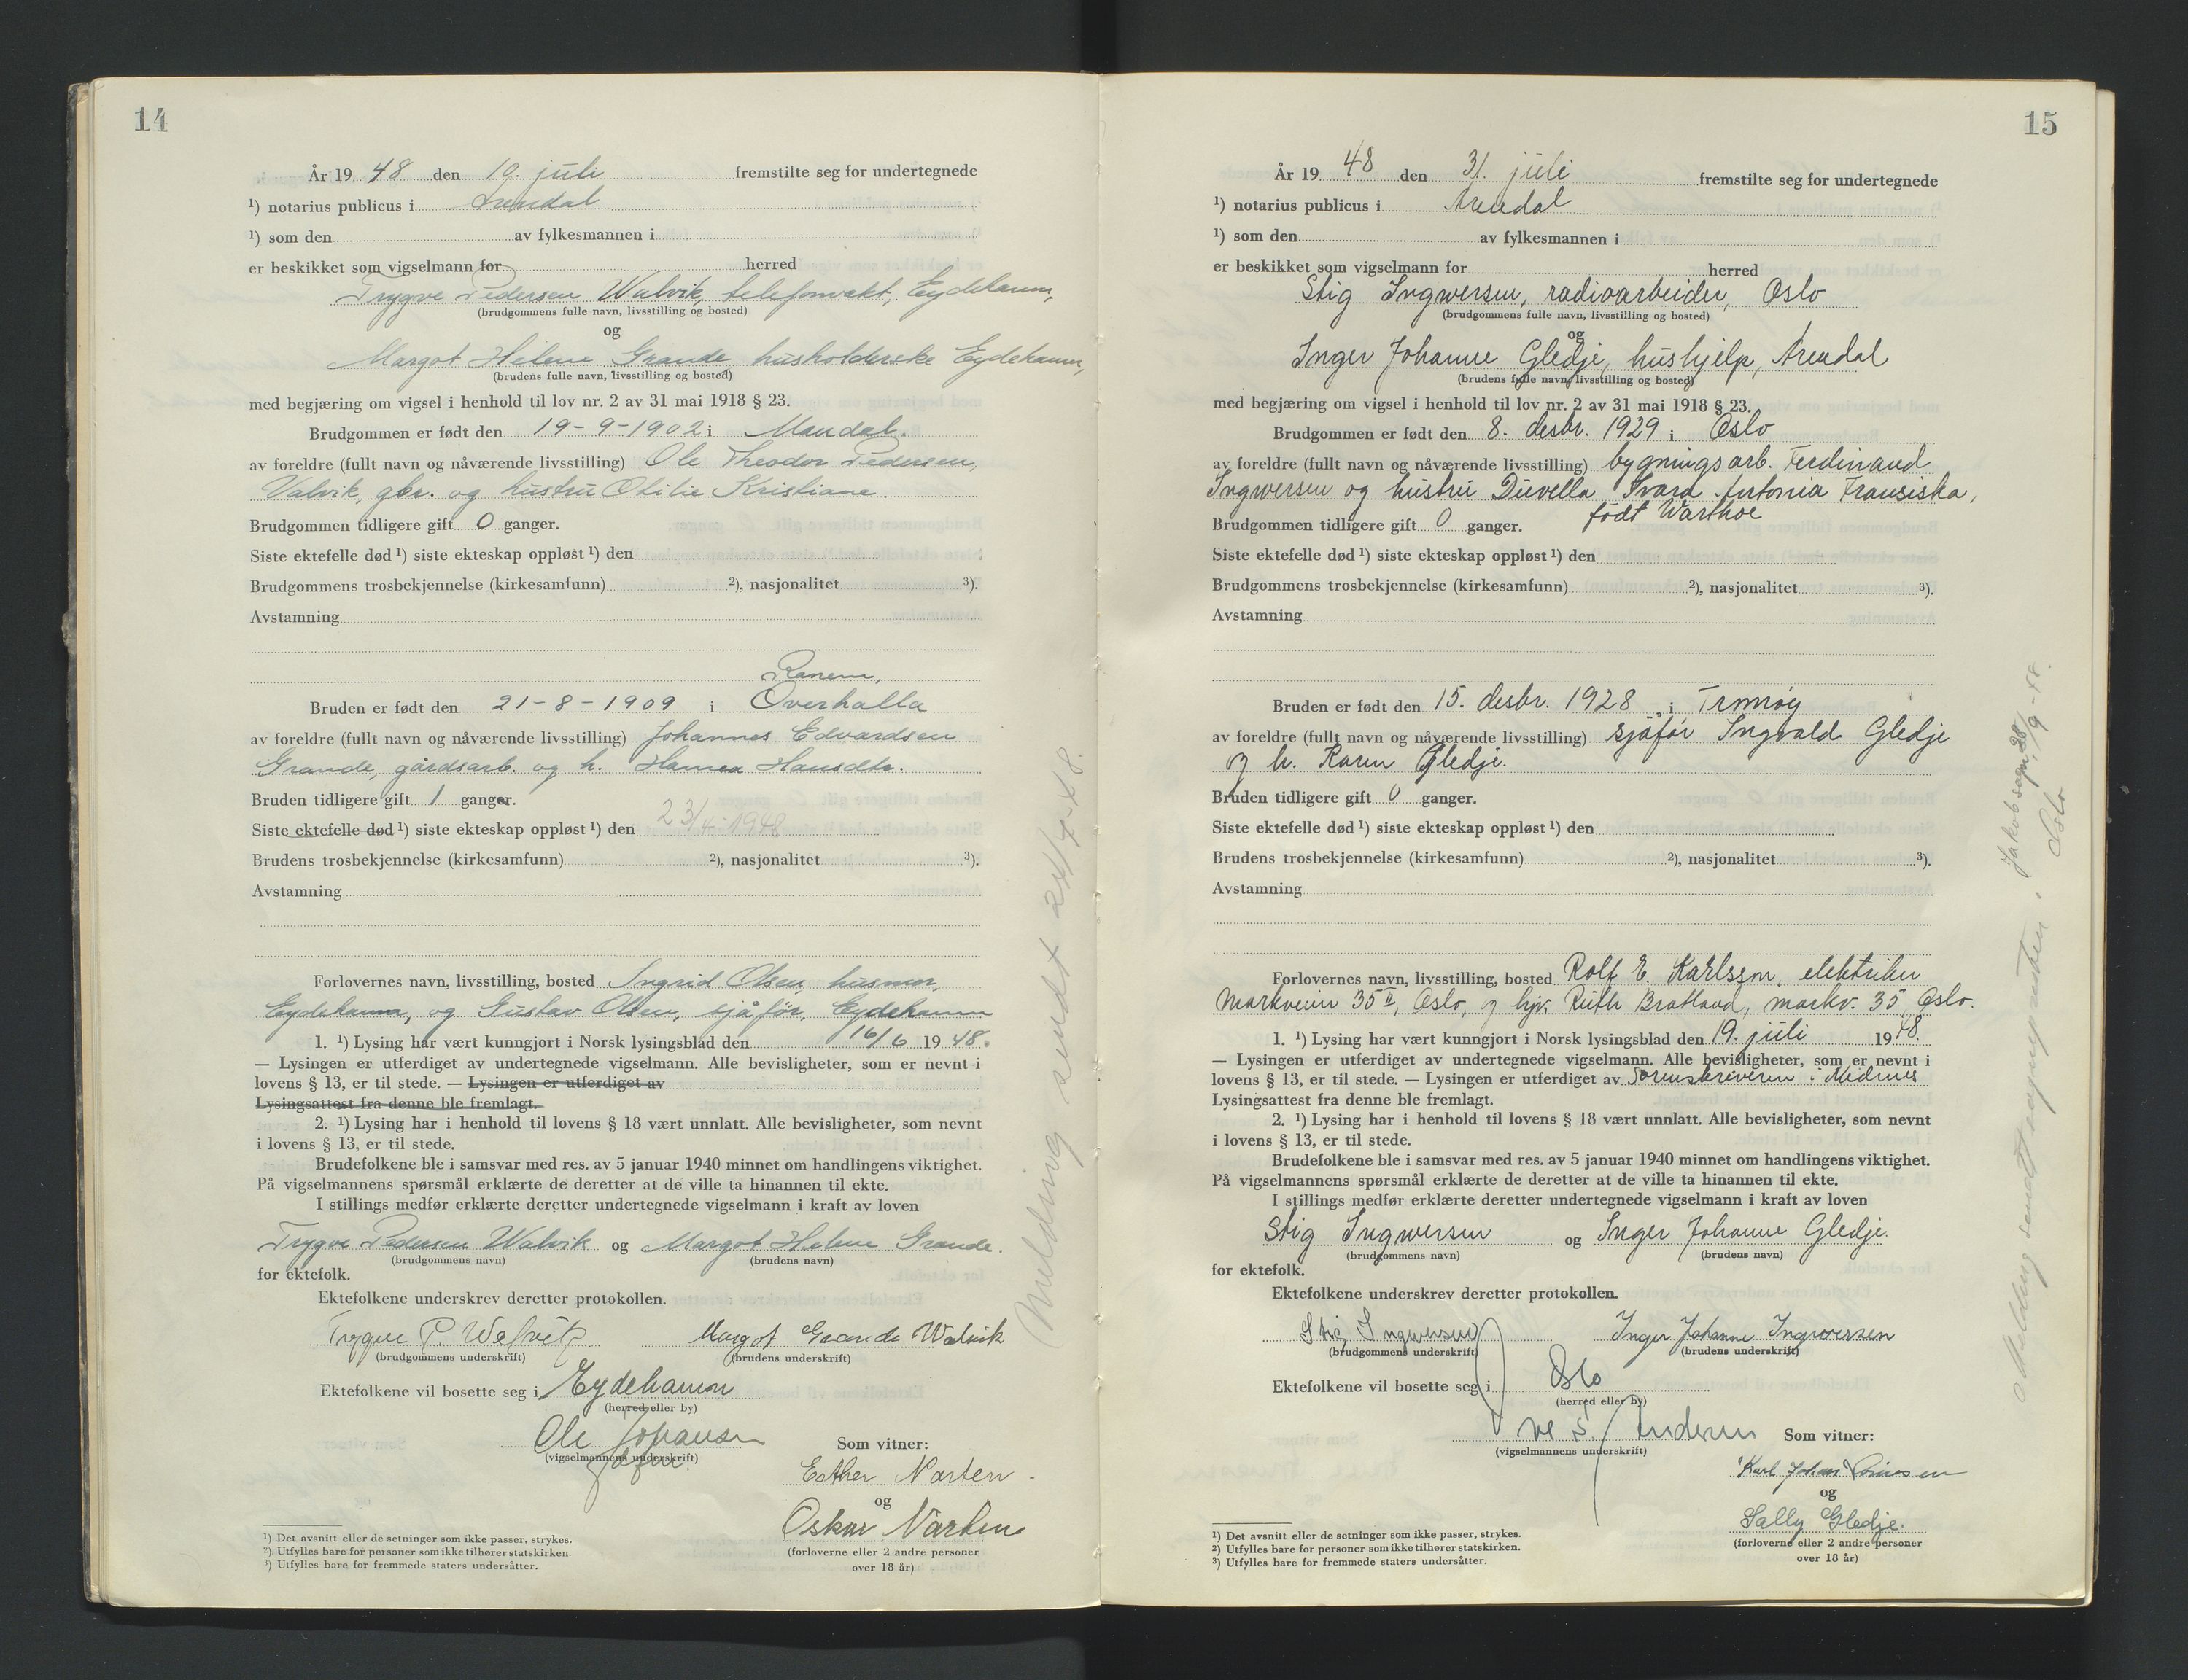 14
År 19 48 den 19. juli fremstilte seg for undertegnede
¹) notarius publicus i Arendal
¹) som den av fylkesmannen i
er beskikket som vigselmann for herred
Trygve Pedersen Walvik, telefonvakt, Eydehavn,
(brudgommens fulle navn, livsstilling og bosted)
og
Margot Helene Grande, husholderske Eydehavn,
(brudens fulle navn, livsstilling og bosted)
med begjæring om vigsel i henhold til lov nr. 2 av 31 mai 1918 § 23.
Brudgommen er født den 19-9-1902 i Mandal.
av foreldre (fullt navn og nåværende livsstilling) Ole Theodor Pedersen,
Valvik, gbr. og hustru Otilie Kristiane.
Brudgommen tidligere gift 0 ganger.
Siste ektefelle død ¹) siste ekteskap oppløst ¹) den
Brudgommens trosbekjennelse (kirkesamfunn) ²), nasjonalitet ³).
Avstamning
Ranem,
Bruden er født den 21-8-1909 i Overhalla
av foreldre (fullt navn og nåværende livsstilling) Johannes Edvardsen
Grande, gårdsarb. og h. Hanna Hansdtr.
Bruden tidligere gift 1 ganger.
Siste ektefelle død ¹) siste ekteskap oppløst ¹) den 23/4-1948
Brudens trosbekjennelse (kirkesamfunn) ²), nasjonalitet ³).
Avstamning
Forlovernes navn, livsstilling, bosted Ingrid Olsen, husmor,
Eydehavn, og Gustav Olsen, sjåfør, Eydehavn
1. ¹) Lysing har vært kunngjort i Norsk lysingsblad den 16/6 19 48.
— Lysingen er utferdiget av undertegnede vigselmann. Alle bevisligheter, som er nevnt i
lovens § 13, er til stede. — Lysingen er utferdiget av
Lysingsattest fra denne ble fremlagt.
2. ¹) Lysing har i henhold til lovens § 18 vært unnlatt. Alle bevisligheter, som nevnt
i lovens § 13, er til stede.
Brudefolkene ble i samsvar med res. av 5 januar 1940 minnet om handlingens viktighet.
På vigselmannens spørsmål erklærte de deretter at de ville ta hinannen til ekte.
I stillings medfør erklærte deretter undertegnede vigselmann i kraft av loven
Trygve Pedersen Walvik og Margot Helene Grande.
(brudgommens navn) (brudens navn)
for ektefolk.
Ektefolkene underskrev deretter protokollen.
Trygve P. Walvik Margot Grande Walvik
(brudgommens underskrift) (brudens underskrift)
Ektefolkene vil bosette seg i Eydehavn
(herred eller by)
Ole Johansen
(vigselmannens underskrift) Som vitner:
Esther Narten
og
Oskar Narten
(forloverne eller 2 andre personer
over 18 år)
¹) Det avsnitt eller de setninger som ikke passer, strykes.
²) Utfylles bare for personer som ikke tilhører statskirken.
³) Utfylles bare for fremmede staters undersåtter.
Melding sendt 24/7-48.
15
År 19 48 den 31. juli fremstilte seg for undertegnede
¹) notarius publicus i Arendal
¹) som den av fylkesmannen i
er beskikket som vigselmann for herred
Stig Ingwersen, radioarbeider, Oslo
(brudgommens fulle navn, livsstilling og bosted)
og
Inger Johanne Gledje, hushjelp, Arendal
(brudens fulle navn, livsstilling og bosted)
med begjæring om vigsel i henhold til lov nr. 2 av 31 mai 1918 § 23.
Brudgommen er født den 8. desbr. 1929 i Oslo
av foreldre (fullt navn og nåværende livsstilling) bygningsarb. Ferdinand
Ingwersen og hustru Duvella Svara Antonia Fransiska,
Brudgommen tidligere gift 0 ganger. født Warthoe
Siste ektefelle død ¹) siste ekteskap oppløst ¹) den
Brudgommens trosbekjennelse (kirkesamfunn) ²), nasjonalitet ³).
Avstamning
Bruden er født den 15. desbr. 1928, i Tromøy
av foreldre (fullt navn og nåværende livsstilling) sjåfør Ingvald Gledje
og h. Karen Gledje.
Bruden tidligere gift 0 ganger.
Siste ektefelle død ¹) siste ekteskap oppløst ¹) den
Brudens trosbekjennelse (kirkesamfunn) ²), nasjonalitet ³).
Avstamning
Forlovernes navn, livsstilling, bosted Rolf E. Karlsson, elektriker
Markveien 35 II, Oslo, og hjv. Ruth Bratland, markv. 35, Oslo.
1. ¹) Lysing har vært kunngjort i Norsk lysingsblad den 19. juli 19 48.
— Lysingen er utferdiget av undertegnede vigselmann. Alle bevisligheter, som er nevnt i
lovens § 13, er til stede. — Lysingen er utferdiget av Sorenskriveren i Nedenes
Lysingsattest fra denne ble fremlagt.
2. ¹) Lysing har i henhold til lovens § 18 vært unnlatt. Alle bevisligheter, som nevnt
i lovens § 13, er til stede.
Brudefolkene ble i samsvar med res. av 5 januar 1940 minnet om handlingens viktighet.
På vigselmannens spørsmål erklærte de deretter at de ville ta hinannen til ekte.
I stillings medfør erklærte deretter undertegnede vigselmann i kraft av loven
Stig Ingwersen og Inger Johanne Gledje.
(brudgommens navn) (brudens navn)
for ektefolk.
Ektefolkene underskrev deretter protokollen.
Stig Ingwersen Inger Johanne Ingwersen
(brudgommens underskrift) (brudens underskrift)
Ektefolkene vil bosette seg i Oslo
(herred eller by)
(vigselmannens underskrift) Som vitner:
Karl Johan
og
Sally Gledje.
(forloverne eller 2 andre personer
over 18 år)
¹) Det avsnitt eller de setninger som ikke passer, strykes.
²) Utfylles bare for personer som ikke tilhører statskirken.
³) Utfylles bare for fremmede staters undersåtter.
Melding sendt sognepresten i Jakob sogn, 28/9-48.
Oslo